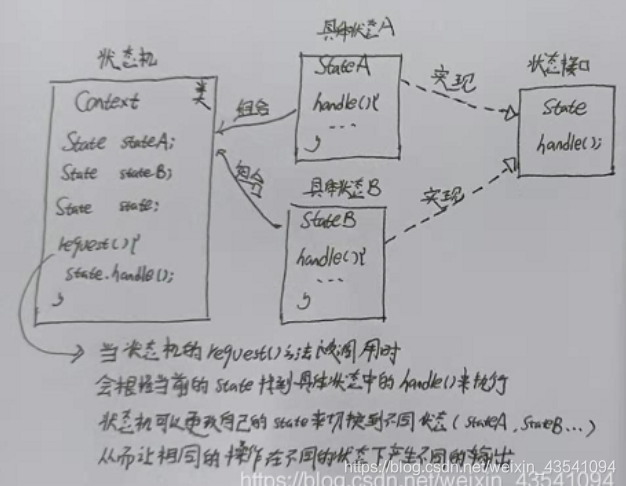 具体状态A
状态机
状态接口
StateA
实现
Context 类
handle(){
组合
State
...
State stateA;
handle();
}
State stateB;
组合
具体状态B
实现
State state;
StateB
request(){
handle(){
state.handle();
...
}
}
当状态机的request()方法被调用时
会根据当前的state找到具体状态中的handle()来执行
状态机可以更改自己的state来切换到不同状态(stateA,stateB...)
从而让相同的操作在不同的状态下产生不同的输出
https://blog.csdn.net/weixin_43541094
https://blog.csdn.net/weixin_43541094